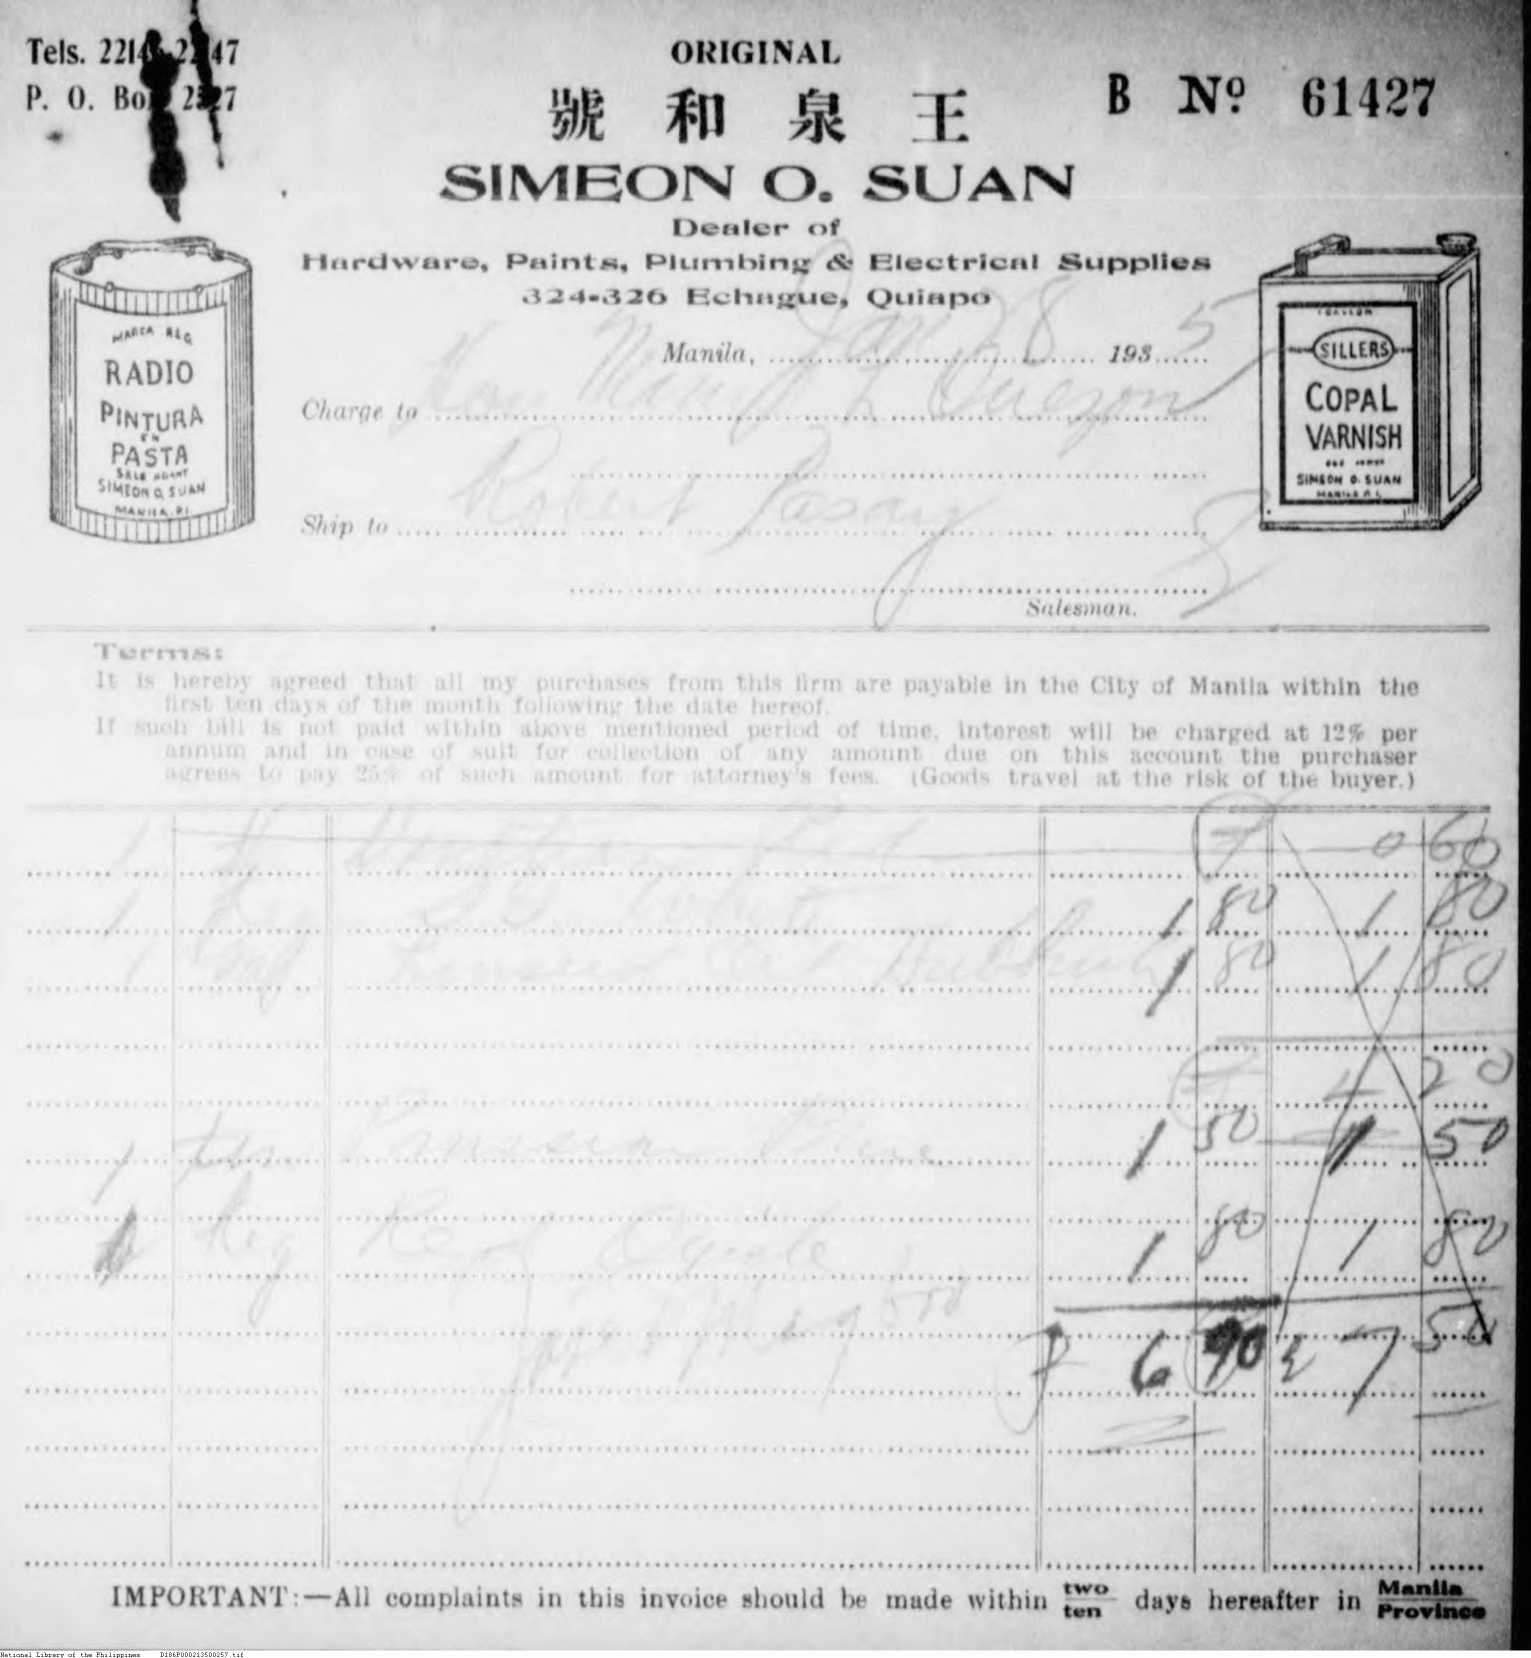 Tels. 2214 22147
P. O. Box 2527
ORIGINAL
號和泉王
B No. 61427
SIMEON O. SUAN
Dealer of
Hardware, Paints, Plumbing & Electrical Supplies
324-326 Echague, Quiapo
Manila, Jan 28 1935
Charge to Hon Manuel L Quezon
Ship to Robert Pasay
Salesman.
MARCA REG
RADIO
PINTURA
EN
PASTA
SALE AGENT
SIMEON O. SUAN
MANILA. P.I.
1 GALLON
SILLERS
COPAL
VARNISH
SIMEON O. SUAN
MANILA P. I.
Terms:
It is hereby agreed that all my purchases from this firm are payable in the City of Manila within the
first ten days of the month following the date hereof.
If such bill is not paid within above mentioned period of time, interest will be charged at 12% per
annum and in case of suit for collection of any amount due on this account the purchaser
agrees to pay 25% of such amount for attorney's fees. (Goods travel at the risk of the buyer.)
1 0 60
1 Kg White 1 80 1 80
1 1 80 1 80
4 20
1 Prussian Blue 1 50 1 50
1 Kg Red Oxide 1 80 1 80
₱ 6 90 7 50
IMPORTANT:—All complaints in this invoice should be made within two/ten days hereafter in Manila/Province
National Library of the Philippines D186P000213500257.tif